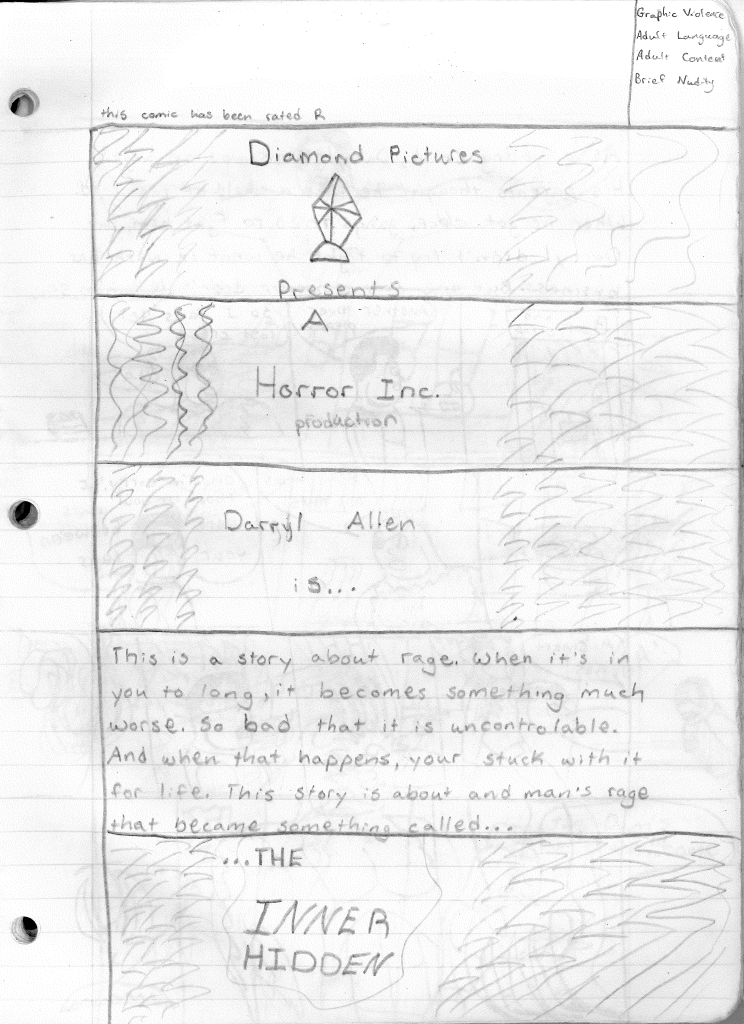 Graphic Violence
Adult Language
Adult Content
Brief Nudity
this comic has been rated R
Diamond Pictures
Presents
A
Horror Inc.
production
Darryl Allen
is...
This is a story about rage. When it's in
you to long, it becomes something much
worse. So bad that it is uncontrolable.
And when that happens, your stuck with it
for life. This story is about and man's rage
that became something called...
...THE
INNER
HIDDEN